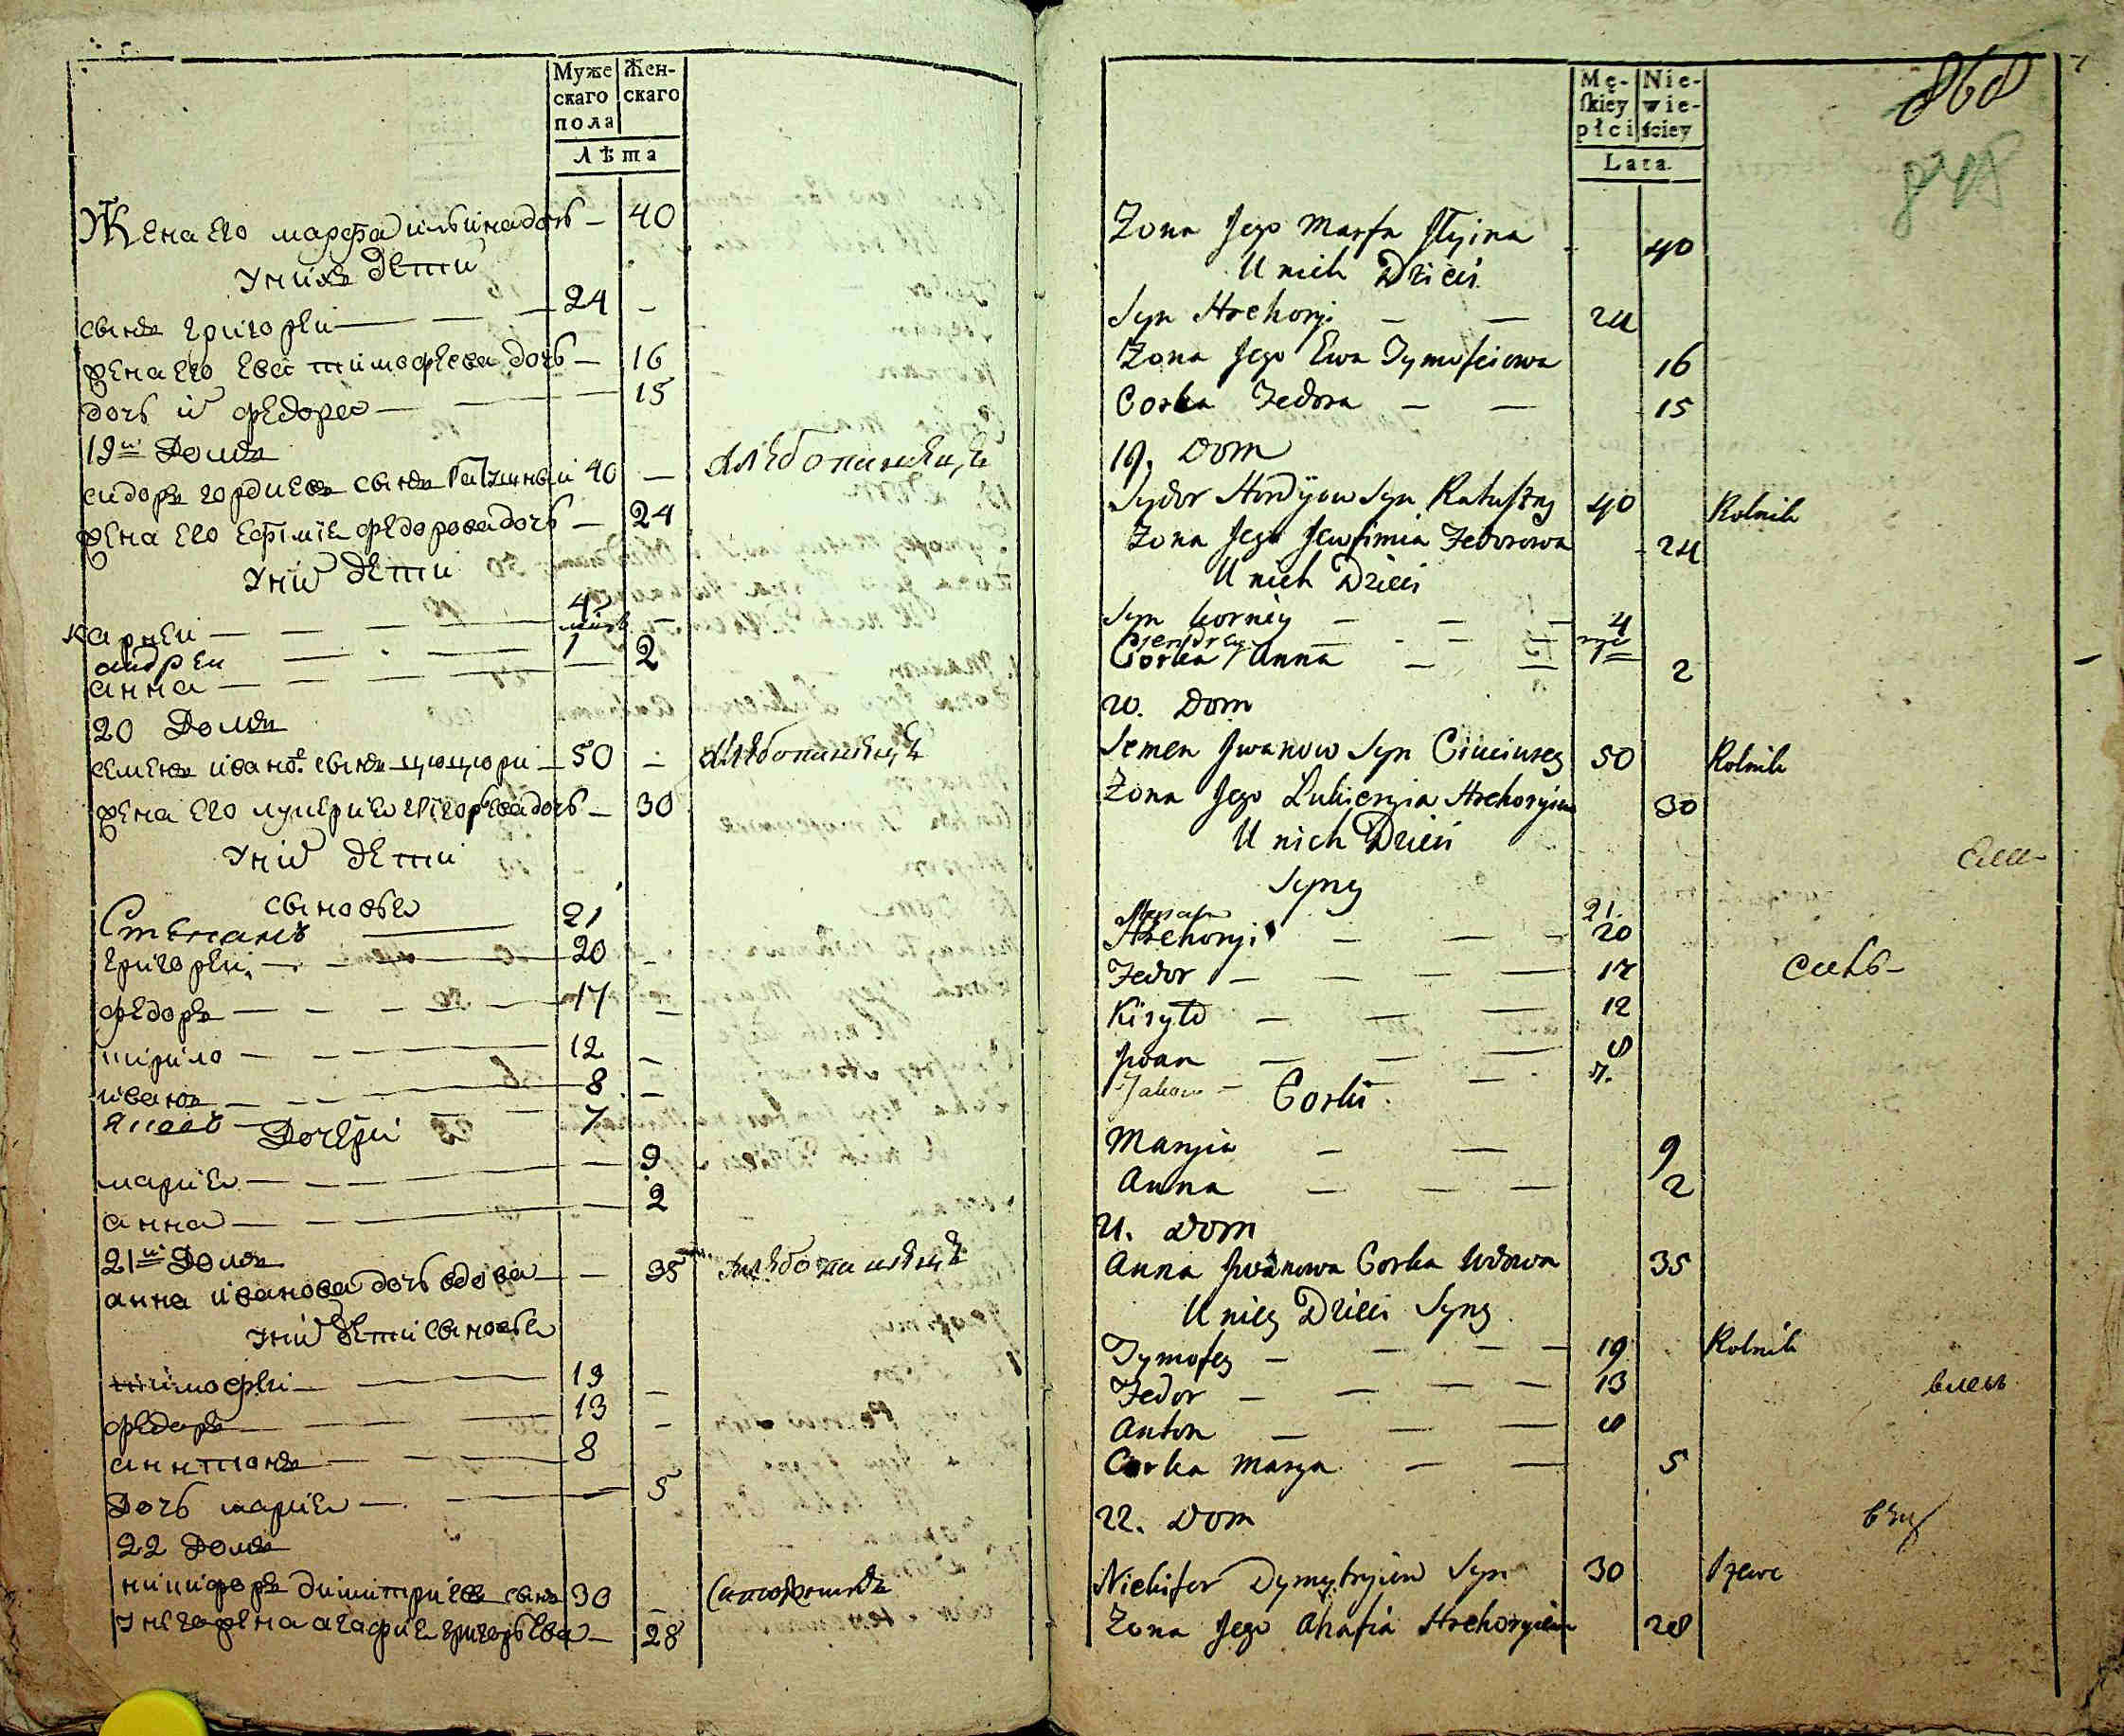 Муже Жен-
скаго скаго
пола
Лѣта
Жена его марфа ильина дочь — 40
У нихъ дети
сынъ григорей — 24 —
жена его ева тимофеева дочь — 16
дочь их федора — 15
19й Домъ
сидоръ гордиевъ сынъ Ратушный 40 — хлѣбопашецъ
жена его ефимия федорова дочь — 24
У них дети
карней — 4 —
андрей — 1
анна — 2
20 Домъ
семенъ иванов сынъ цюцюра — 50 — хлѣбопашецъ
жена его лукерия григорьева дочь — 30
У них дети
сыновья
Степанъ — 21
григорей — 20 —
федоръ — 17 —
кирило — 12 —
иванъ — 8 —
яковъ — 7
Дочери
мария — 9
анна — 2
21й Домъ
анна иванова дочь вдова — 35 хлѣбопашецъ
У них дети сыновья
тимофей — 19 —
федоръ — 13 —
антонъ — 8
Дочь мария — 5
22 Домъ
никифоръ димитриевъ сынъ 30 — Сапожникъ
У него жена агафия григорьева — 28
Mę- Nie-
ſkiey wie-
płci ściey
Lata.
868
Zona Jego Marfa Jlyina 40
U nich Dzieci
Syn Hrehory — 24
Zona Jego Ewa Tymofeiowa 16
Corka Fedora — 15
19. Dom
Sydor Hordyow Syn Ratuszny 40 Rolnik
Zona Jego Jewfimia Fedorowa 24
U nich Dzieci
Syn Korniey — 4
Corka Anna — 2
20. Dom
Semen Jwanow Syn Ciuciura 50 Rolnik
Zona Jego Lukieryia Hrehoryiew 30
U nich Dzieci
Syny
21.
Hrehoryi — 20
Fedor — 17
Kiryło — 12
Jwan — 8
Jakow — 7.
Corki
Maryia — 9
Anna — 2
21. Dom
Anna Jwanowa Corka Wdowa 35
U niey Dzieci Syny
Tymofey — 19 Rolnik
Fedor — 13
Anton — 8
Corka Marya — 5
22. Dom
Nichifor Dymytryiew Syn 30 Szewc
Zona Jego Ahafia Hrehoryiew 28